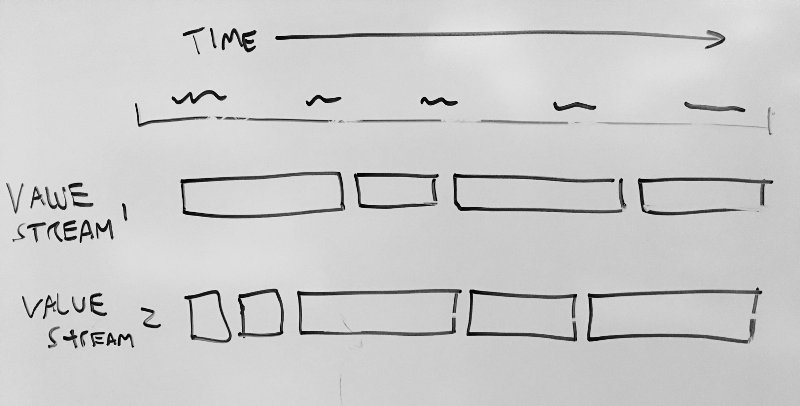 TIME
VALUE
STREAM 1
VALUE
STREAM 2